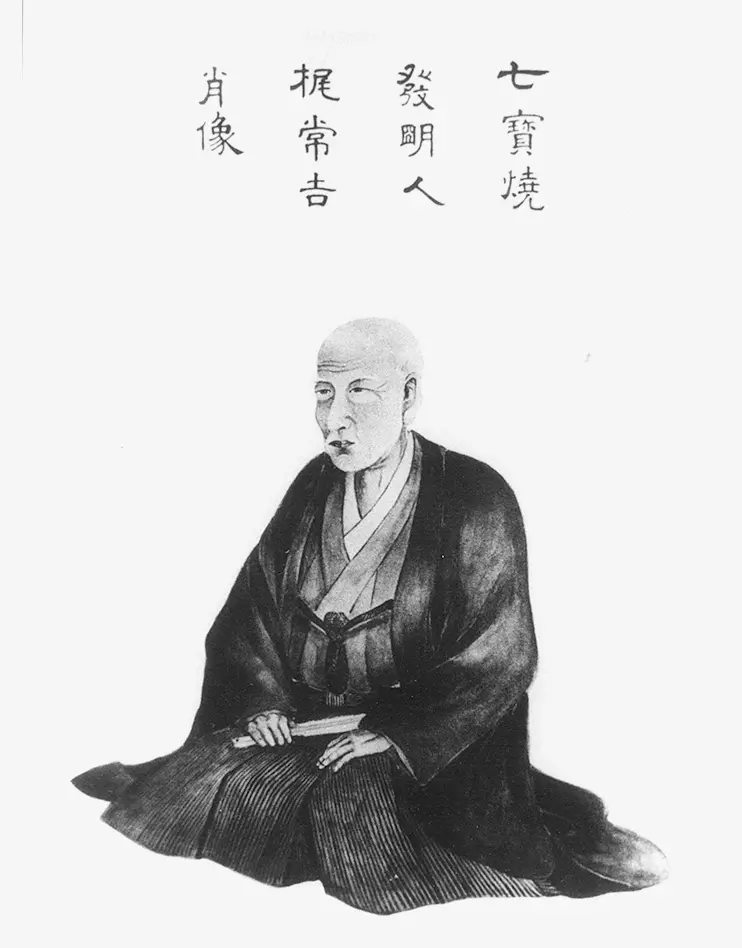 七寳燒
發明人
梶常吉
肖像